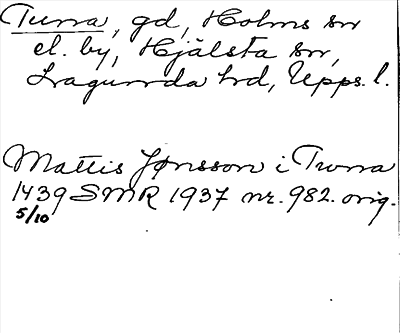 Turra, gd, Holms sn
el. by, Hjälsta sn,
Lagunda hd, Upps. l.
Mattis Jønsson i Twrra
1439 SMR 1937 nr. 982. orig.
5/10